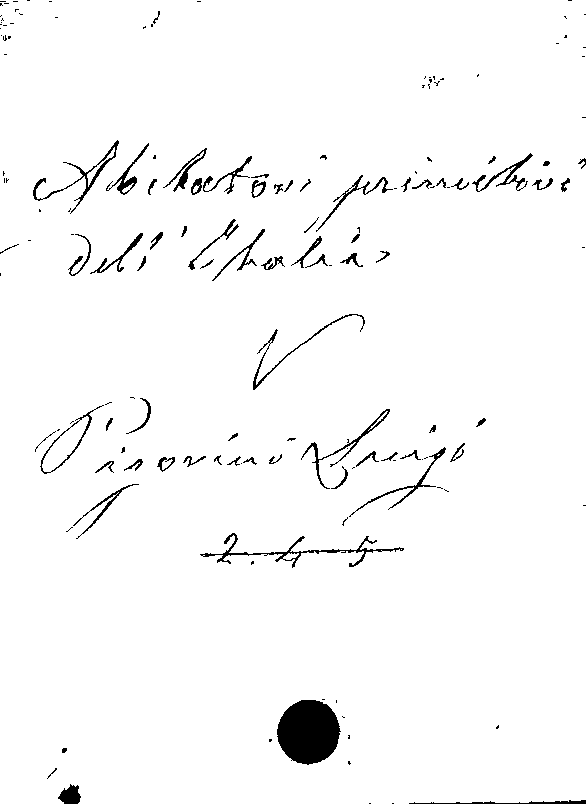 Abitatori primitivi
dell' Italia
V
Pigorini Luigi
2. 4 5